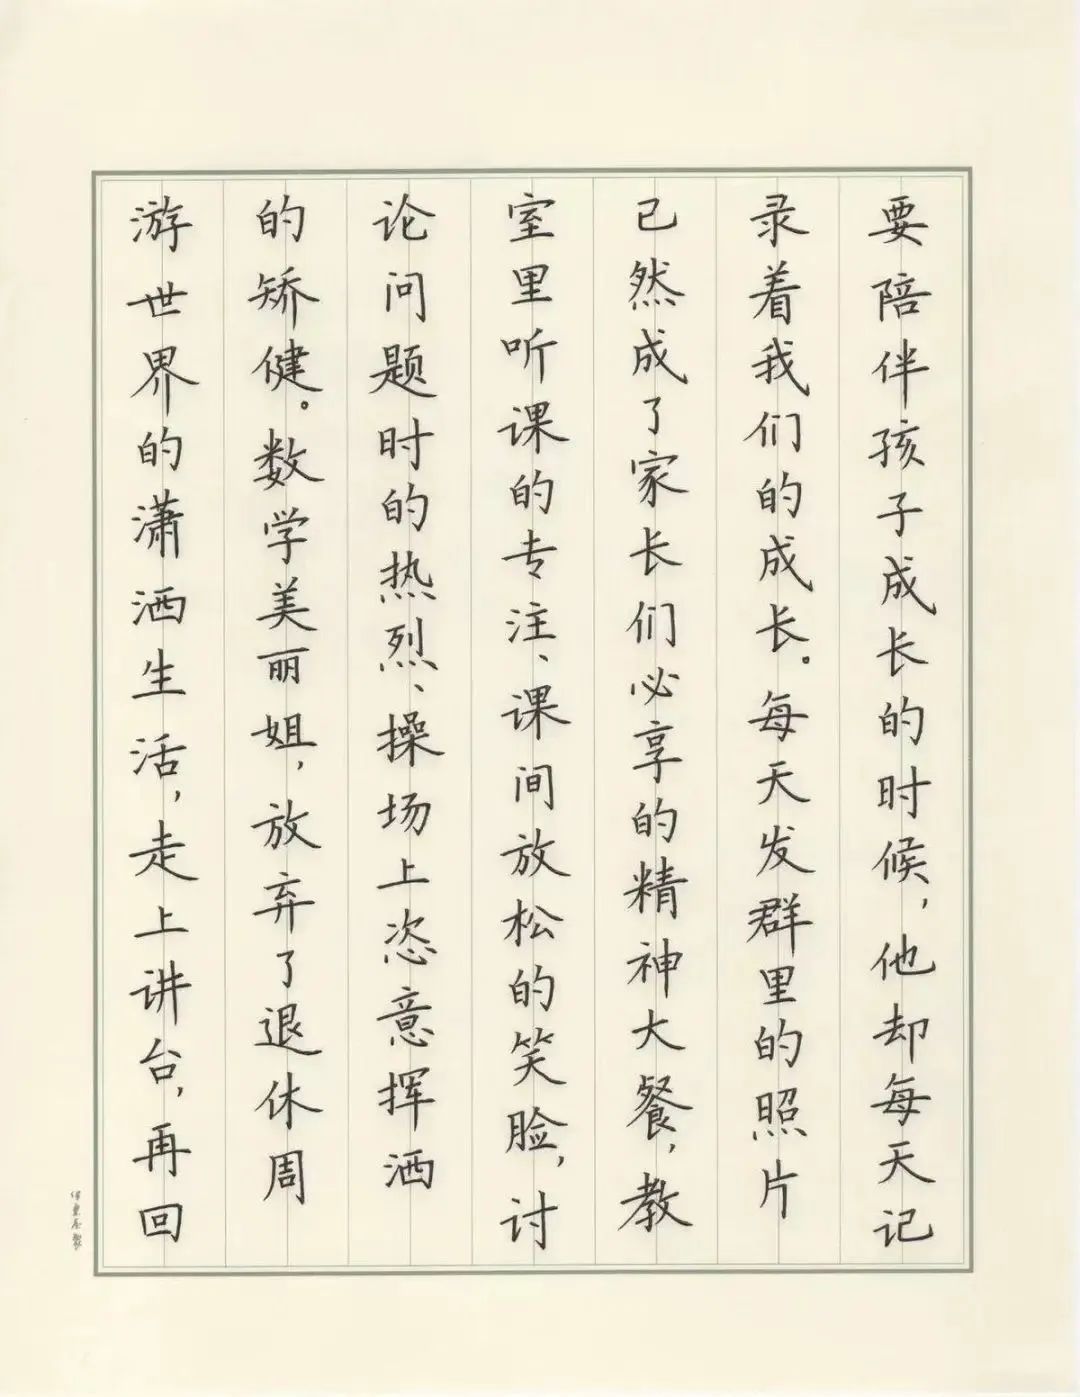 要陪伴孩子成长的时候，他却每天记
录着我们的成长。每天发群里的照片
已然成了家长们必享的精神大餐，教
室里听课的专注、课间放松的笑脸，讨
论问题时的热烈、操场上恣意挥洒
的矫健。数学美丽姐，放弃了退休周
游世界的潇洒生活，走上讲台，再回